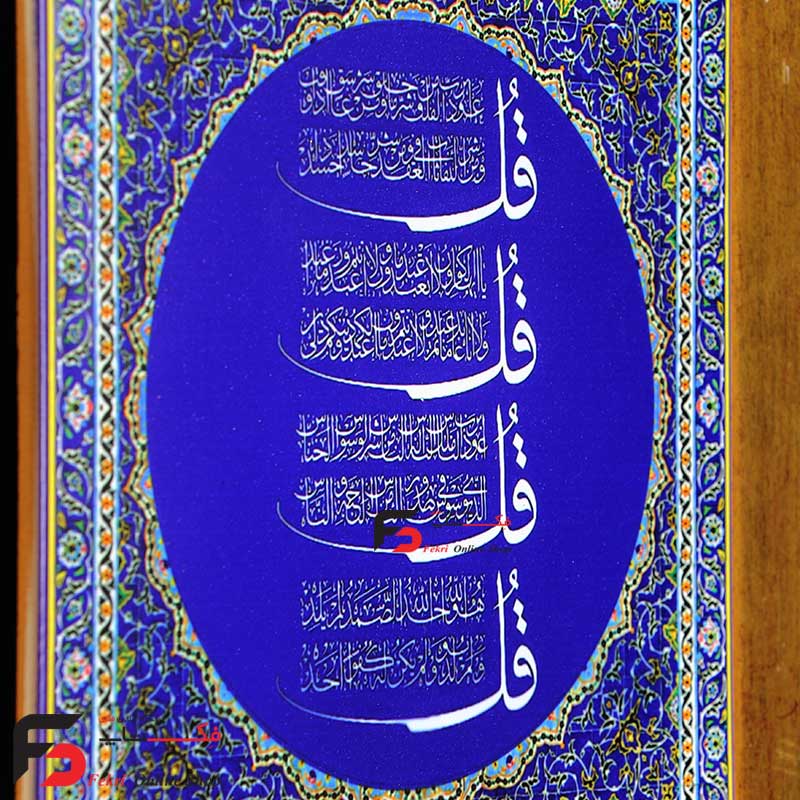 قُل
اعوذ برب الفلق من شر ما خلق ومن شر غاسق اذا وقب
ومن شر النفاثات فی العقد ومن شر حاسد اذا حسد
قُل
یا ایها الکافرون لا اعبد ما تعبدون ولا انتم عابدون ما اعبد
ولا انا عابد ما عبدتم ولا انتم عابدون ما اعبد لکم دینکم ولی دین
قُل
اعوذ برب الناس ملک الناس اله الناس من شر الوسواس الخناس
الذی یوسوس فی صدور الناس من الجنة و الناس
Fekri Online Shop
قُل
هو الله احد الله الصمد لم یلد
ولم یولد ولم یکن له کفوا احد
Fekri Online Shop